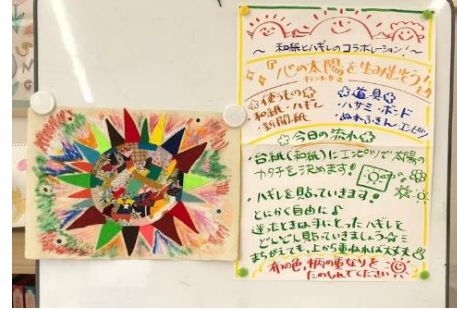 ～ 和紙とハギレのコラボレーション! ～
『心の太陽を生み出そう!』
使うもの
和紙・ハギレ
新聞紙
道具
・ハサミ・ボンド
・ぬれふきん・エンピツ
今日の流れ
・台紙(和紙)にエンピツで太陽の
カタチを決めます!
・ハギレを貼っていきます!
とにかく自由に♪
迷ったときは手にとったハギレを
どんどん貼っていきましょう☆ミ
まちがえても、上から重ねれば大丈夫
布の色、柄の重なりを
たのしんでください